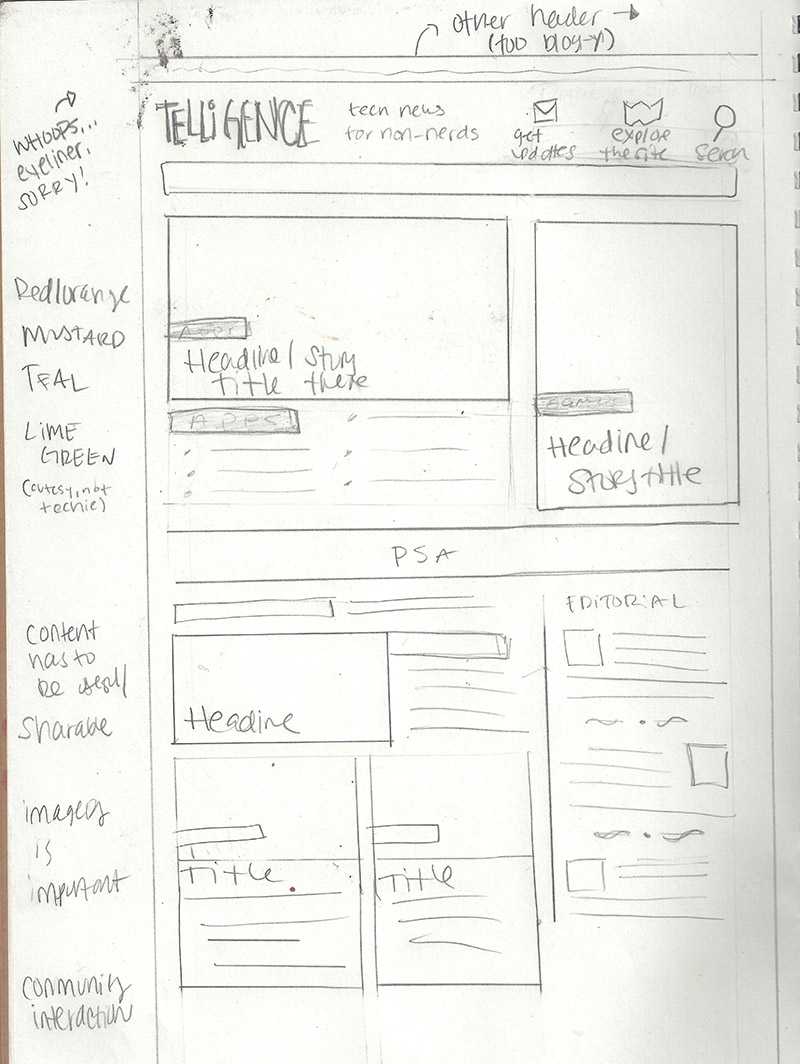 other header →
(too blog-y)
WHOOPS...
eyeliner,
SORRY!
TELLiGENCE
tech news
for non-nerds
get
updates
explore
the site
Search
Red/orange
MUSTARD
TEAL
LIME
GREEN
(cutesy, not
techie)
APPS
Headline/ Story
title there
APPS
Headline/
Story title
PSA
EDITORIAL
content
has to
be useful/
Sharable
Headline
imagery
is
important
Title
Title
community
interaction